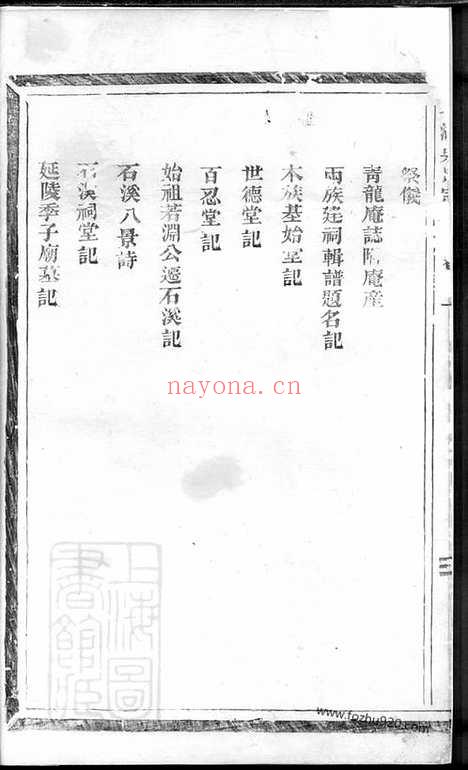 祭儀
青龍庵誌附庵産
兩族建祠輯譜題名記
本族基始堂記
世德堂記
百忍堂記
始祖若淵公遷石溪記
石溪八景詩
石溪祠堂記
延陵季子廟墓記
nayona.cn
上海圖
書館藏
www.fozhu920.com